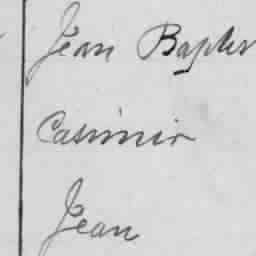 Jean Baptis
Casimir
Jean